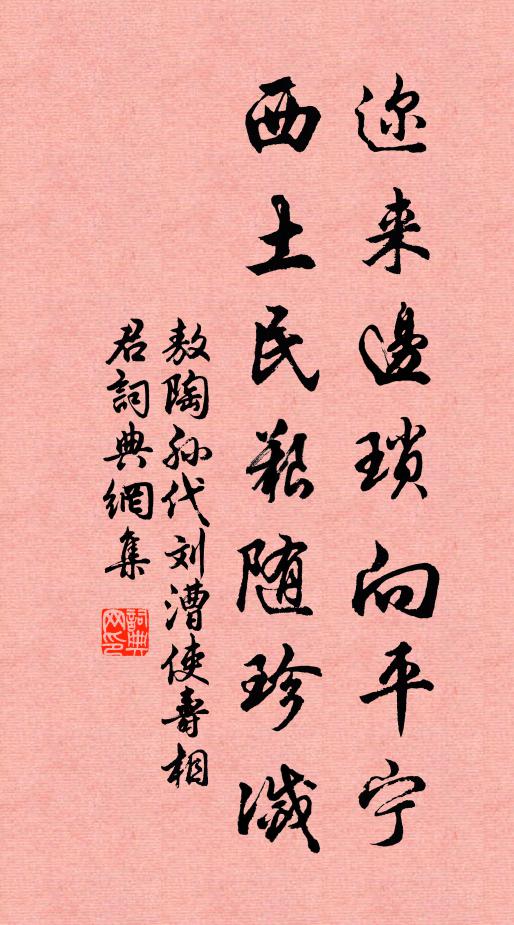 迩来边琐向平宁
西土民艰随珍滅
敖陶孙代刘漕使寿相
君詞典網集
詞典网印